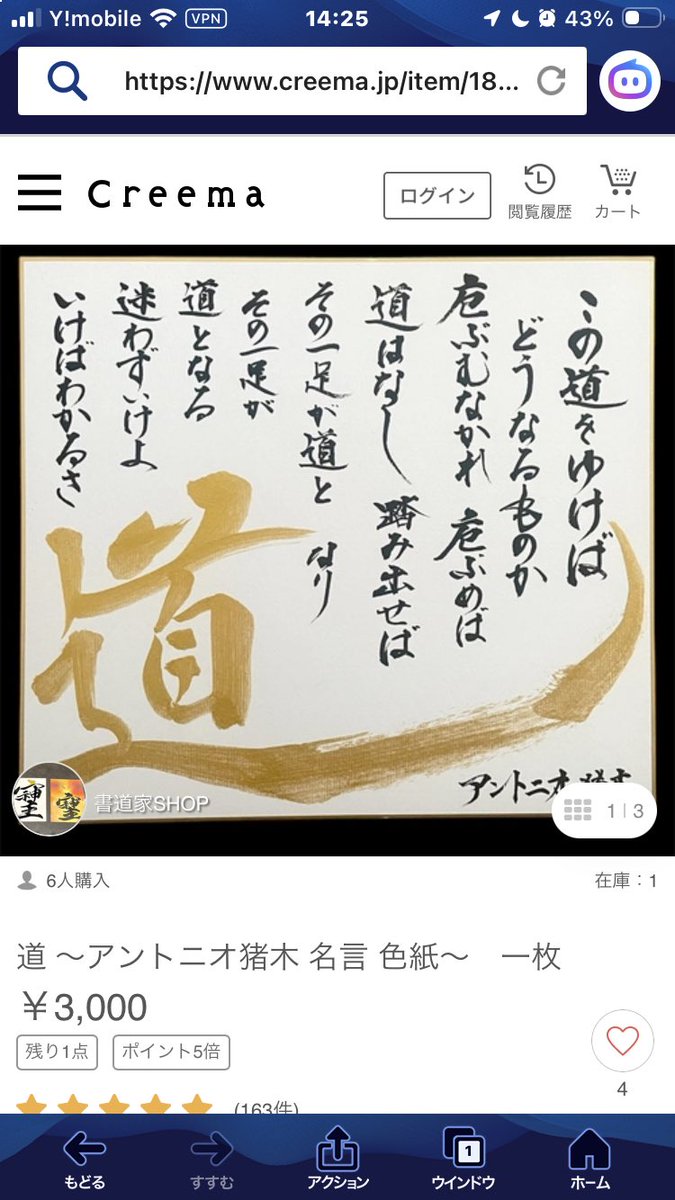 Y!mobile VPN 14:25 43%
https://www.creema.jp/item/18...
Creema ログイン 閲覧履歴 カート
この道をゆけば
どうなるものか
危ぶむなかれ 危ぶめば
道はなし 踏み出せば
その一足が道となり
その一足が
道となる
迷わずいけよ
いけばわかるさ
道
アントニオ猪木
書道家SHOP
1 | 3
6人購入 在庫:1
道 〜アントニオ猪木 名言 色紙〜 一枚
¥3,000
残り1点 ポイント5倍
4
(163件)
もどる すすむ アクション 1 ウインドウ ホーム